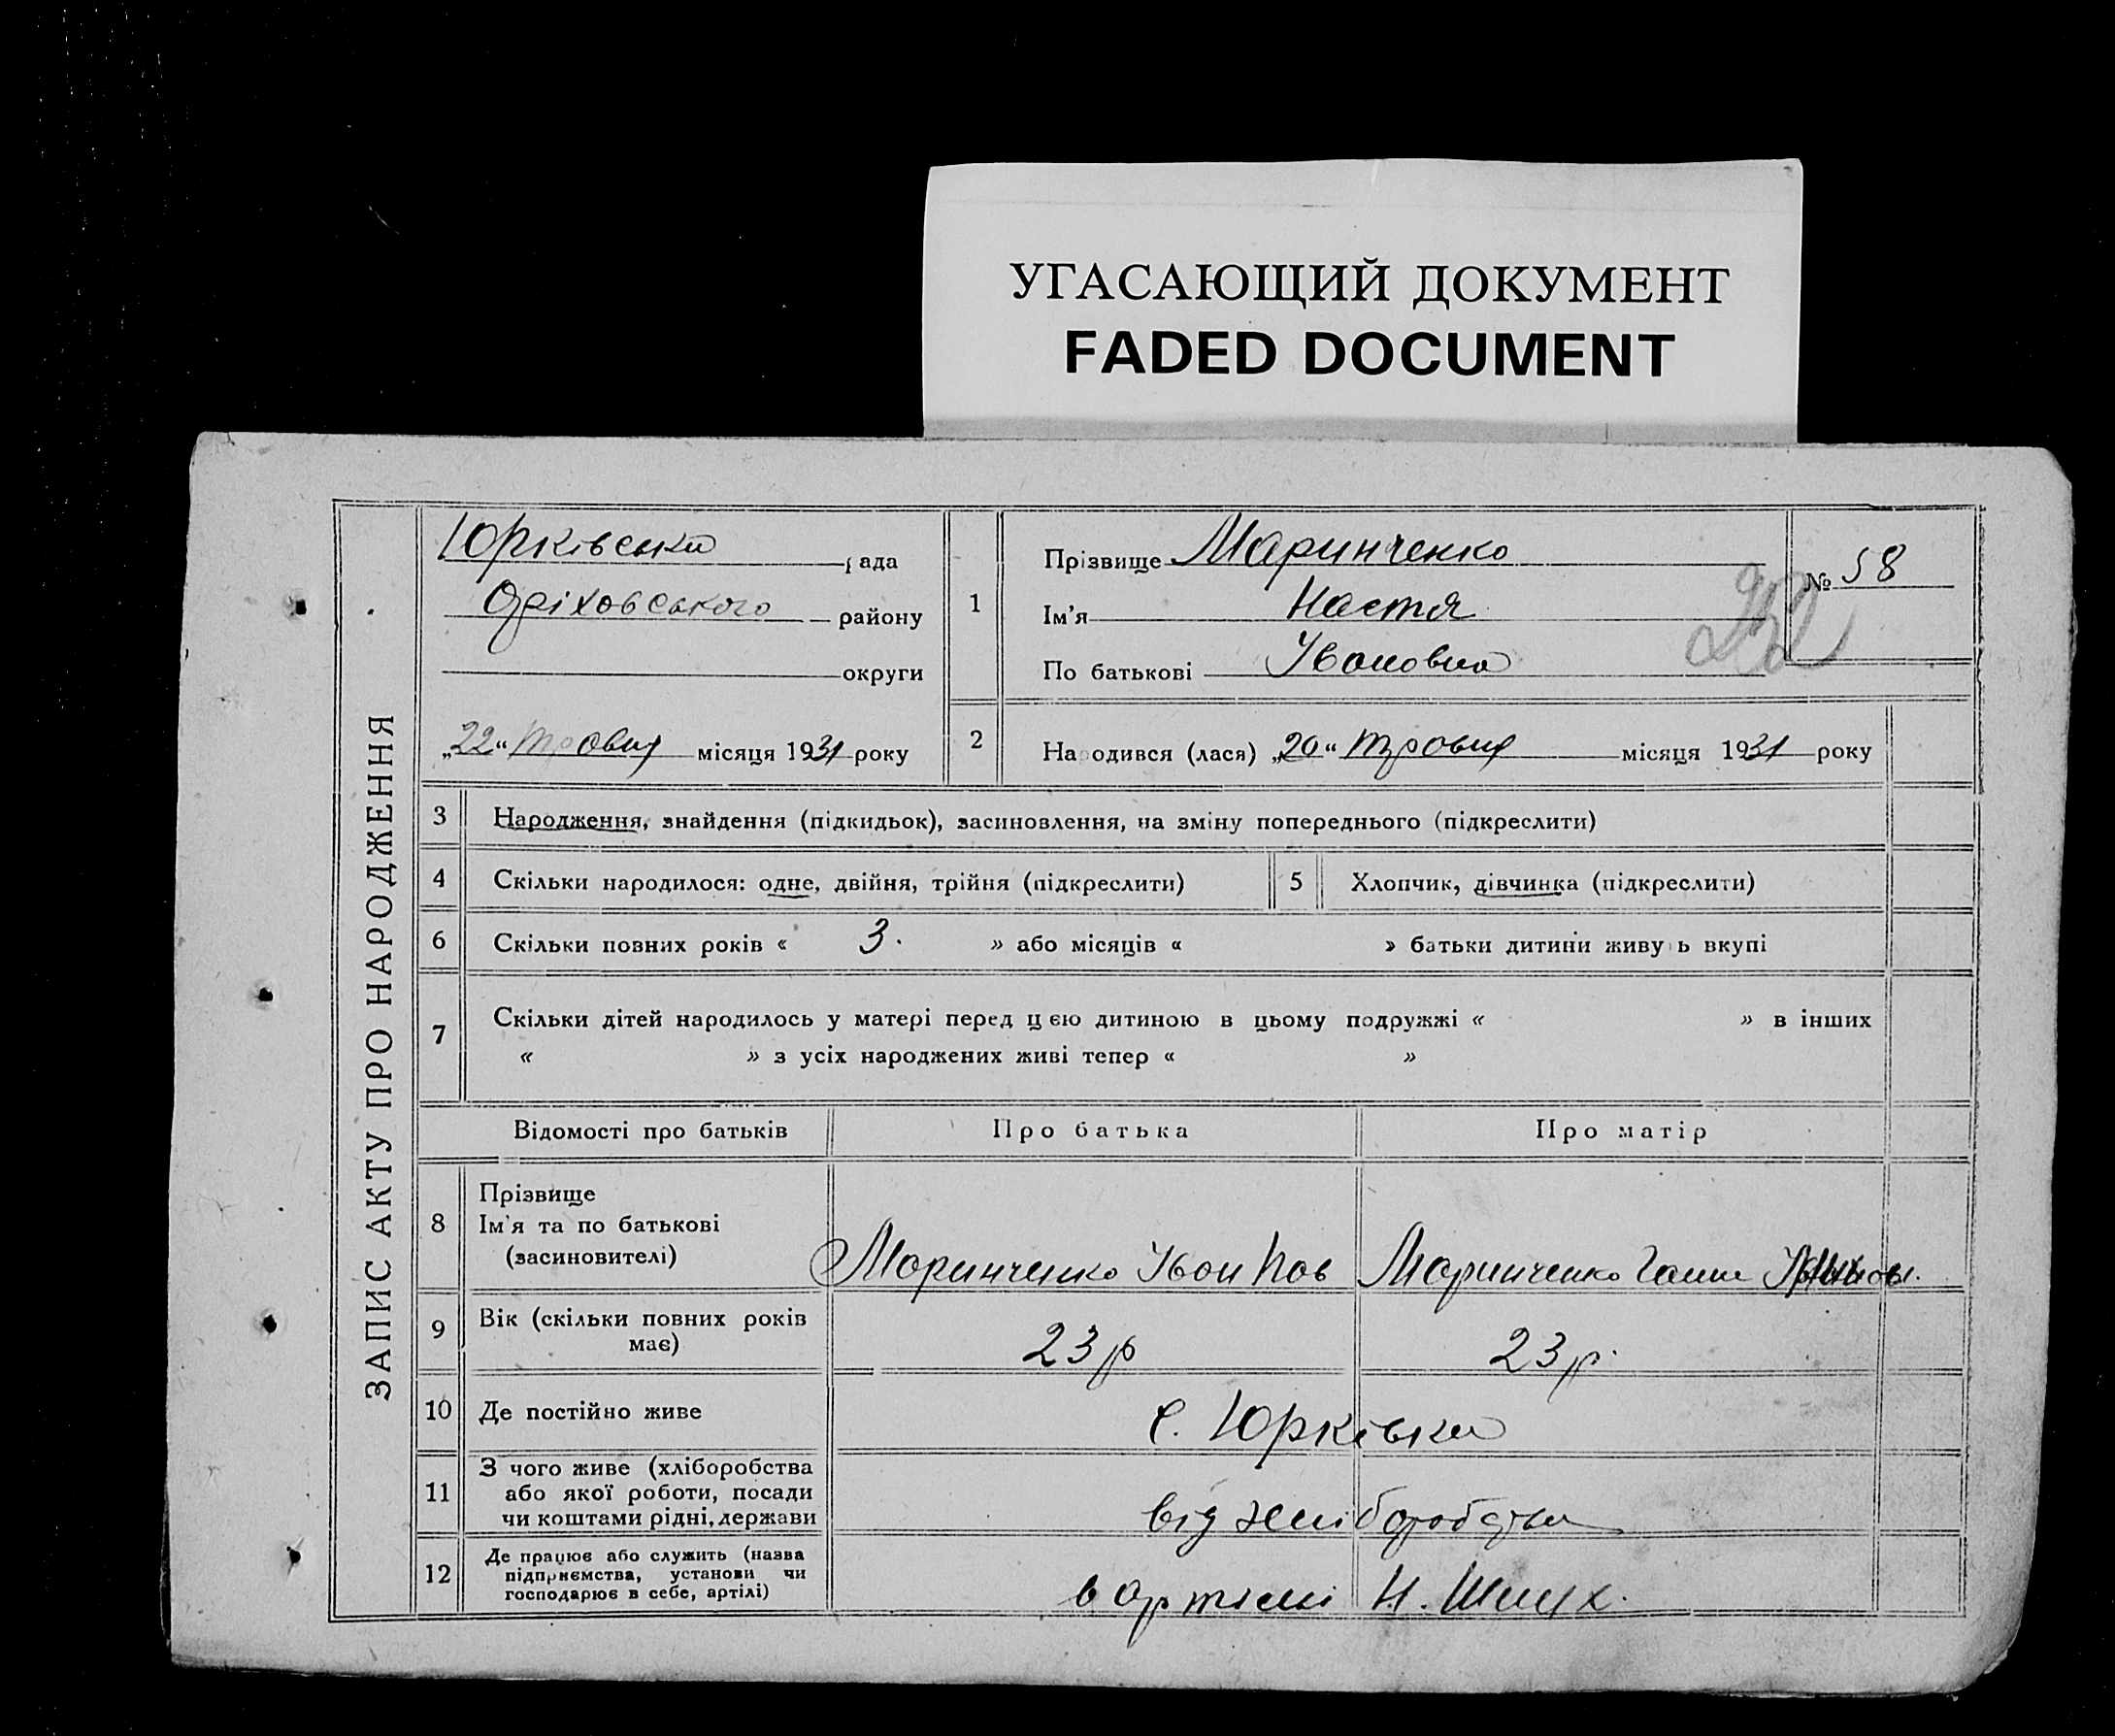 УГАСАЮЩИЙ ДОКУМЕНТ
FADED DOCUMENT
ЗАПИС АКТУ ПРО НАРОДЖЕННЯ
Юрківська рада
Оріховського району
округи
„22“ травня місяця 1931 року
1
Прізвище Маринченко
Ім'я Настя
По батькові Івановна
№ 58
2
Народився (лася) „20“ травня місяця 1931 року
3 Народження, знайдення (підкидьок), засиновлення, на зміну попереднього (підкреслити)
4 Скільки народилося: одне, двійня, трійня (підкреслити)
5 Хлопчик, дівчинка (підкреслити)
6 Скільки повних років « 3. » або місяців « » батьки дитини живуть вкупі
7 Скільки дітей народилось у матері перед цією дитиною в цьому подружжі « » в інших
« » з усіх народжених живі тепер « »
Відомості про батьків
Про батька
Про матір
8
Прізвище
Ім'я та по батькові
(засиновителі)
Маринченко Іван Пав
Маринченко Ганна
9
Вік (скільки повних років
має)
23 р
23 р.
10 Де постійно живе
с. Юрківка
11
З чого живе (хліборобства
або якої роботи, посади
чи коштами рідні, держави
від хліборобства
12
Де працює або служить (назва
підприємства, установи чи
господарює в себе, артілі)
в артілі Н. Шлях.